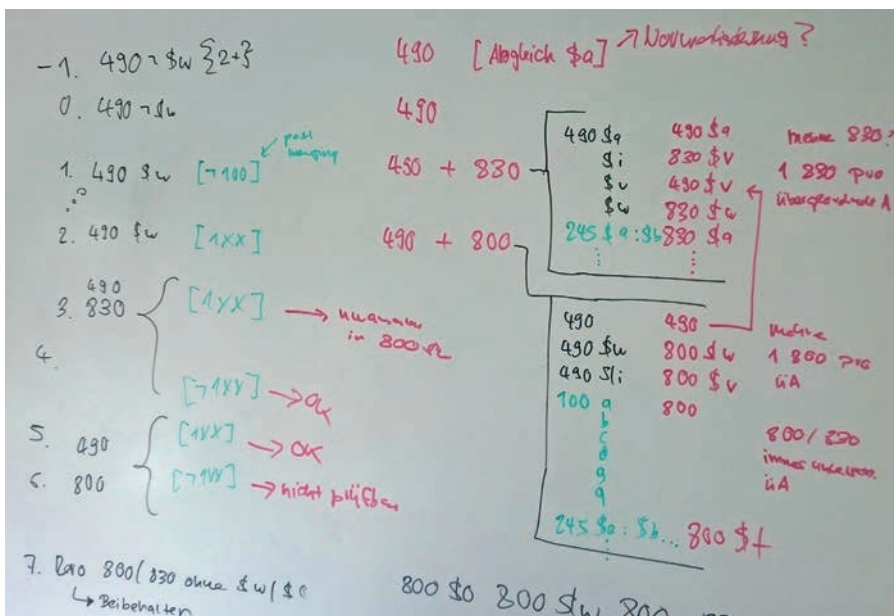 -1. 490 ¬ $w {2+} 490 [Abgleich $a] ↗ Normalisierung?
0. 490 ¬ $w 490
1. 490 $w [¬100] 490 + 830
2. 490 $w [1XX] 490 + 800
490
3. 830 [1XX] → umwandeln
in 800
4.
[¬1XX] → OK
5. 490 [1XX] → OK
6. 800 [¬1XX] → nicht prüfbar
7. 800/830 ohne $w/
↳ Beibehalten
490 $a 490 $a
$i 830 $v
$v 490 $v
$w 830 $w
245 $a : $b 830 $a
⋮ ⋮
mehrere 830?
1 830 pro
übergeordnete A
490 490
490 $w 800 $w
490 $i 800 $v
100 a 800
b
c
d
g
q
245 $a : $b... 800 $t
⋮
mehrere
1 800 pro
üA
800/830
immer
üA
800 $0 800 $w 800